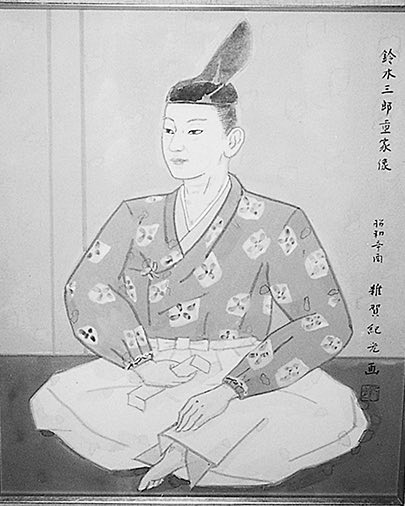 鈴木三郎重家像
昭和辛酉 雜賀紀光画